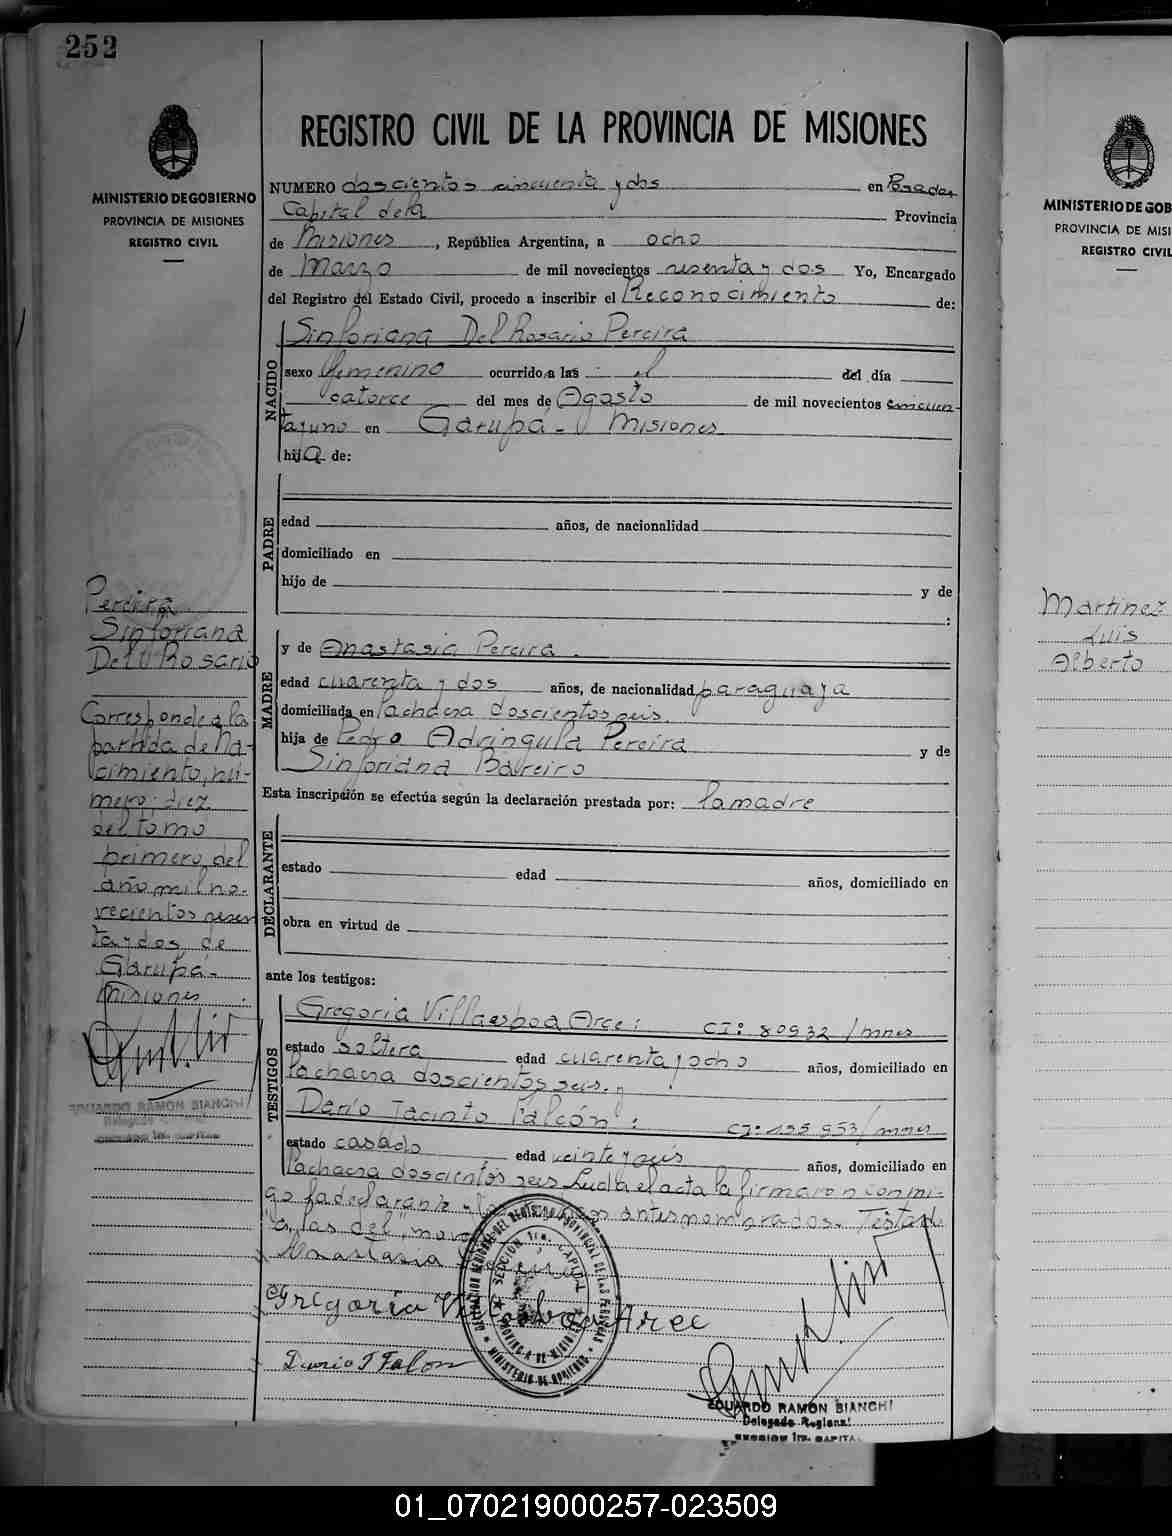 252
REGISTRO CIVIL DE LA PROVINCIA DE MISIONES
MINISTERIO DE GOBIERNO
PROVINCIA DE MISIONES
REGISTRO CIVIL
NUMERO doscientos cincuenta y dos en Posadas
Capital de la Provincia
de Misiones, República Argentina, a ocho
de Marzo de mil novecientos sesenta y dos Yo, Encargado
del Registro del Estado Civil, procedo a inscribir el Reconocimiento de:
NACIDO
Sinforiana Del Rosario Pereira
sexo femenino ocurrido a las el del día
catorce del mes de Agosto de mil novecientos cincuen-
ta y uno en Garupá - Misiones
hija de:
PADRE
edad años, de nacionalidad
domiciliado en
hijo de y de
:
MADRE
y de Anastasia Pereira.
edad cuarenta y dos años, de nacionalidad paraguaya
domiciliada en la chacra doscientos seis.
hija de Pedro Pereira y de
Sinforiana Bareiro
Esta inscripción se efectúa según la declaración prestada por: la madre
DECLARANTE
estado edad años, domiciliado en
obra en virtud de
ante los testigos:
TESTIGOS
Gregoria Villasboa Arce: CI: 80932/mnes
estado soltera edad cuarenta y ocho años, domiciliado en
la chacra doscientos seis. y
Darío Jacinto Falcón: CI: 155953/mnes
estado casado edad veinte y seis años, domiciliado en
la chacra doscientos seis Leída el acta la firmaron conmi-
go la declarante y antes nombrados. Testado
"a las del"
Anastasia
Gregoria Arce
Dario J Falcon
EDUARDO RAMON BIANCHI
Delegado Regional
SECCION 1ra. CAPITAL
SECCION 1ra. CAPITAL
MINISTERIO DE GOBIERNO
Pereira
Sinforiana
Del Rosario
Corresponde a la
partida de Na-
cimiento, nú-
mero: diez
del tomo
primero, del
año mil no-
vecientos sesen
ta y dos de
Garupá -
Misiones.
EDUARDO RAMON BIANCHI
MINISTERIO DE GOB
PROVINCIA DE MISI
REGISTRO CIVIL
Martinez
Luis
Alberto
01_070219000257-023509